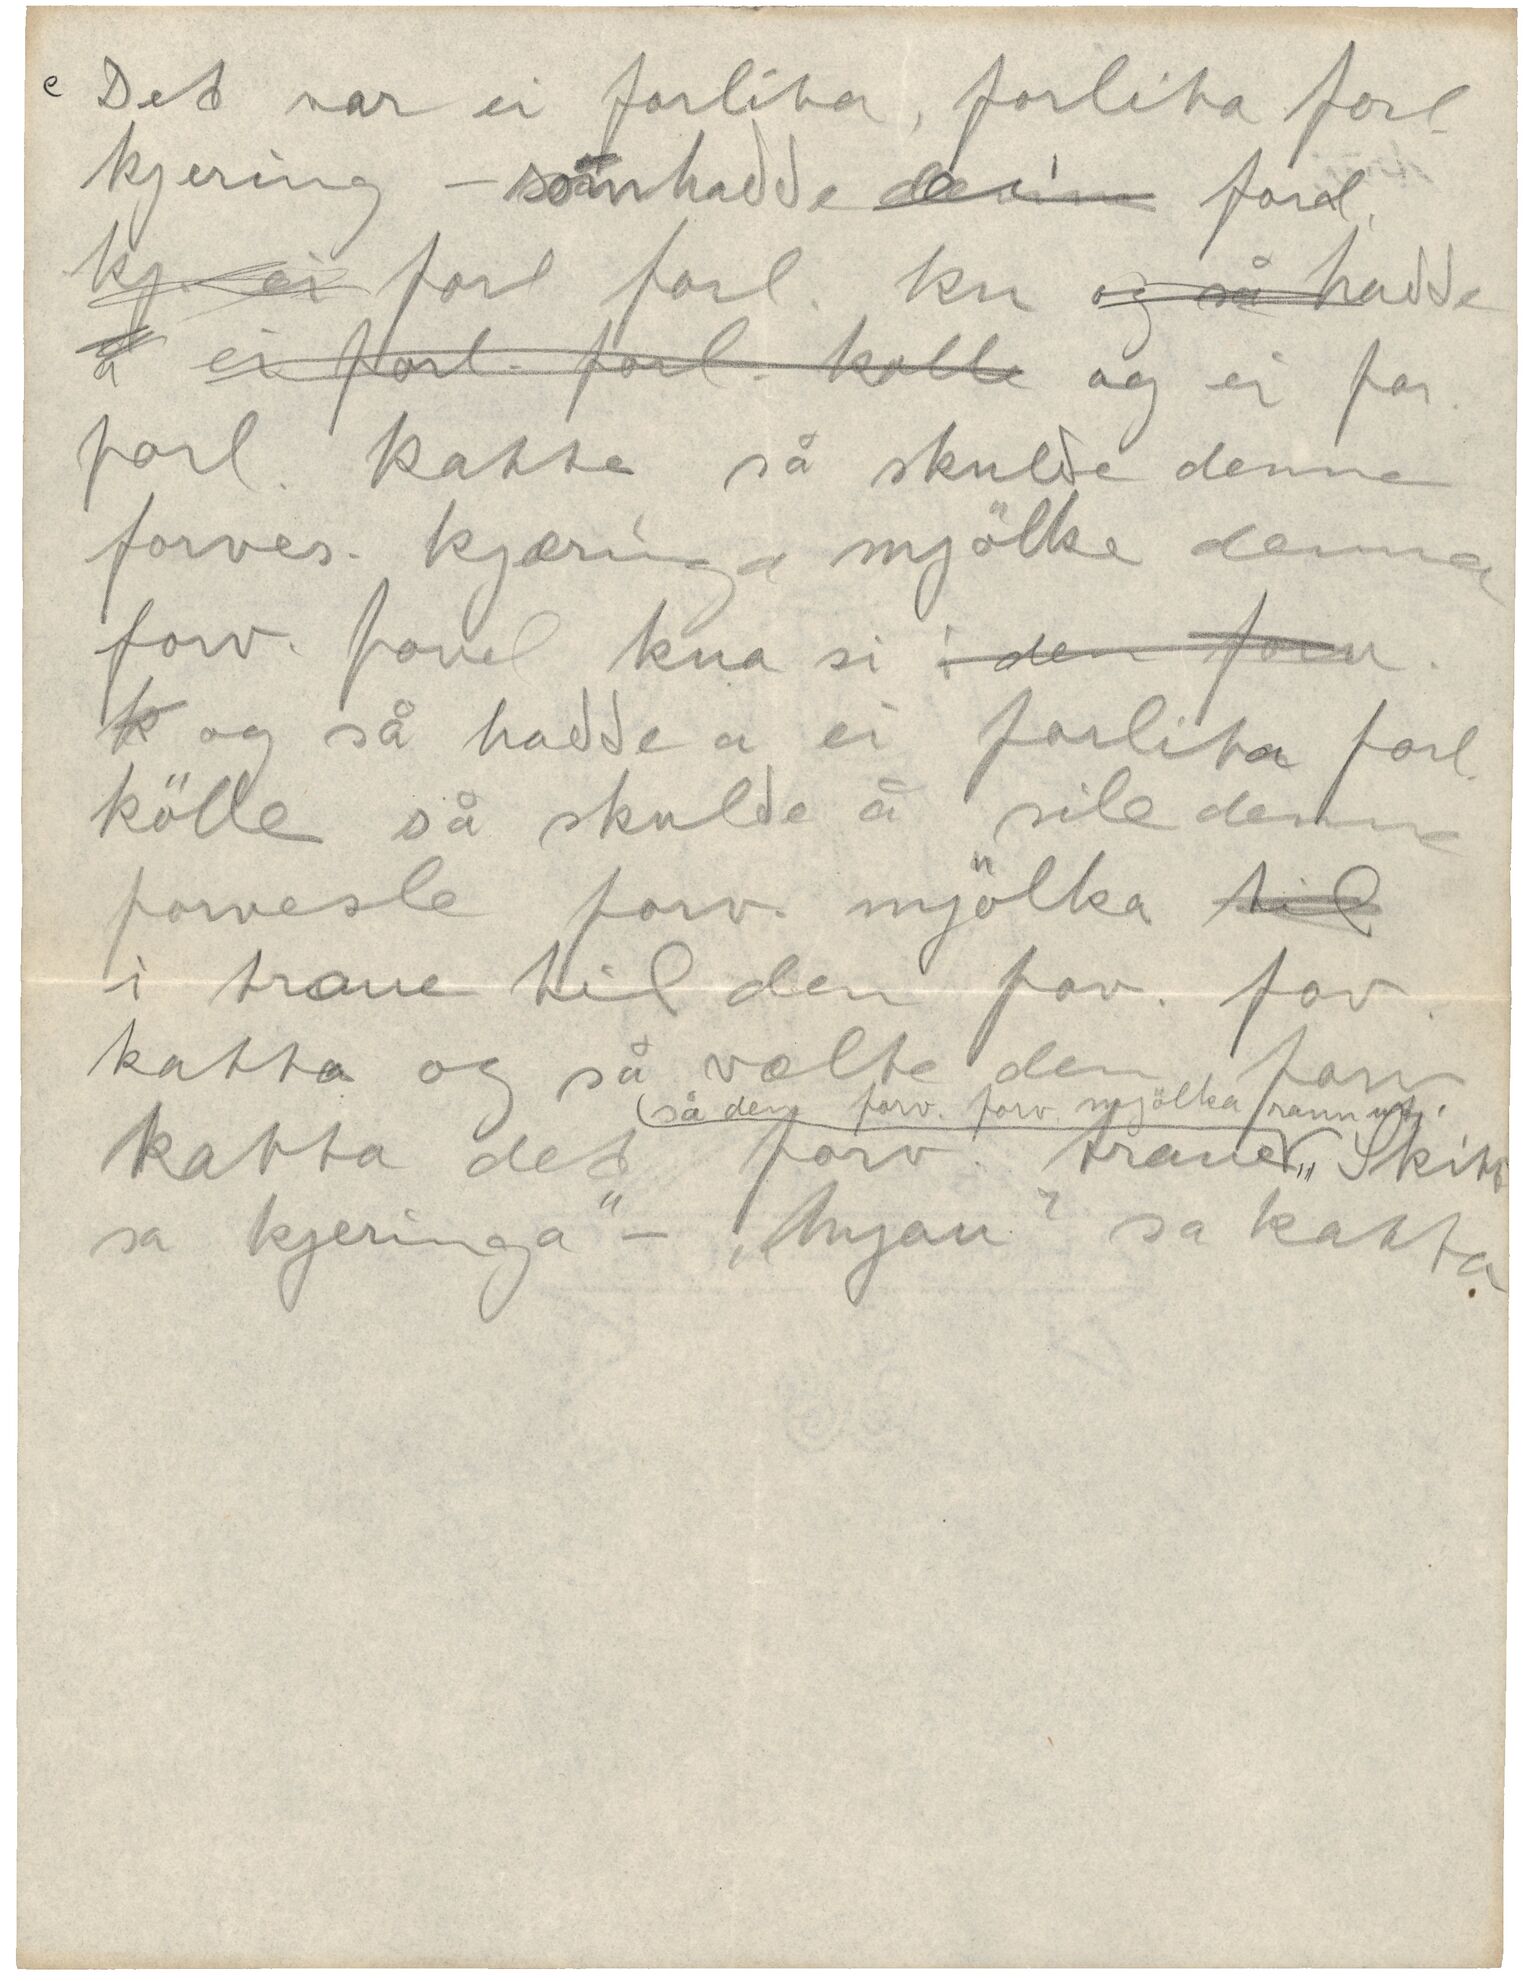 c Det var ei forlita, forlita forl.
kjering – som hadde denne forl.
kj. ei forl forl. ku og så hadde
a ei forl. forl. kolle og ei for.
forl. katte så skulde denne
forves. kjæringa mjölke denna
forv. forvel kua si i den forv.
k og så hadde a ei forlita forl.
kölle så skulde a sile denne
forvesle forv. mjölka til
i traue til den fov. fov.
katta og så vælte den forv
(så den forv. forv. mjölka rann ut.
katta det forv. traue „Skitt
sa kjeringa" – „Mjau" sa katta